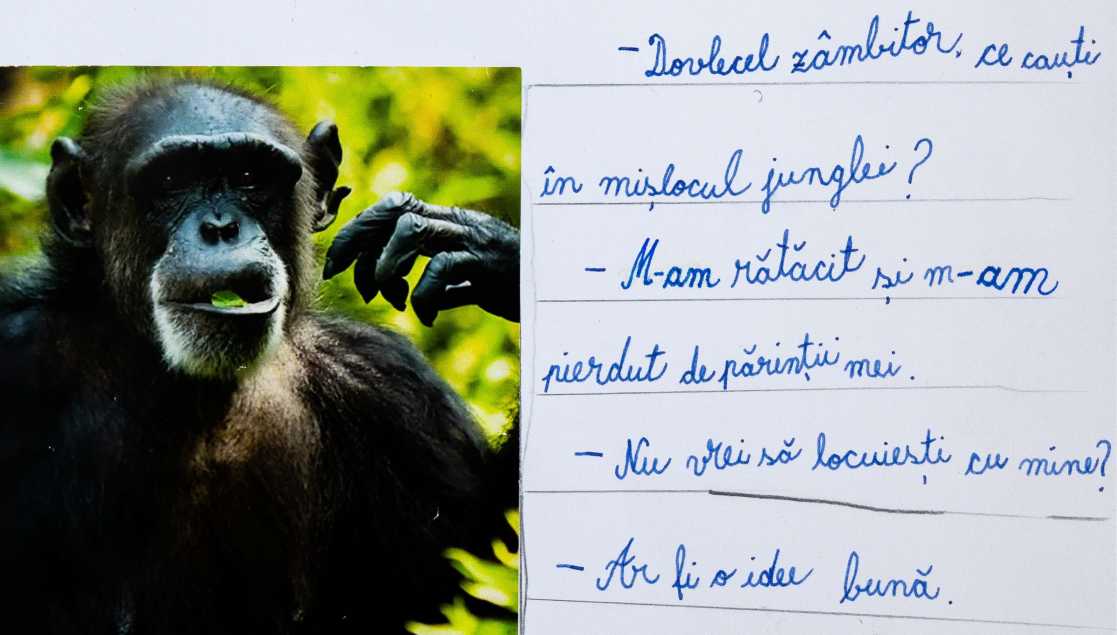 - Dovlecel zâmbitor, ce cauți
în mișlocul junglei?
- M-am rătăcit și m-am
pierdut de părinții mei.
- Nu vrei să locuiești cu mine?
- Ar fi o idee bună.